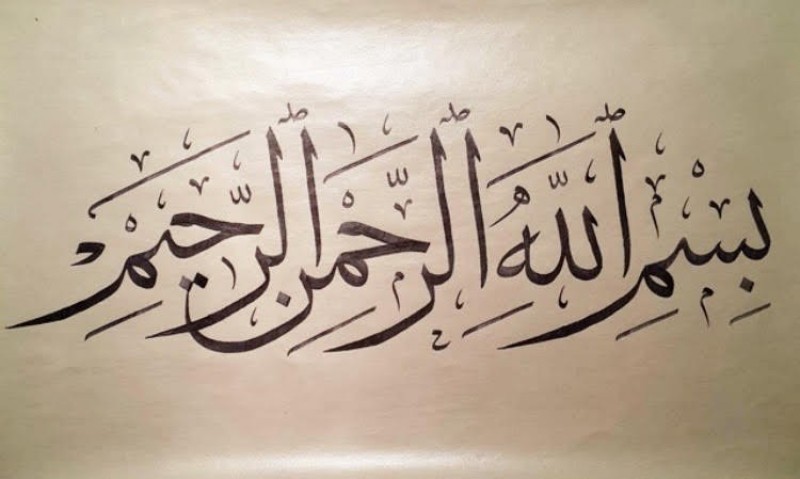 بِسْمِ ٱللَّهُ ٱلرَّحْمٰنِ ٱلرَّحِيمِ